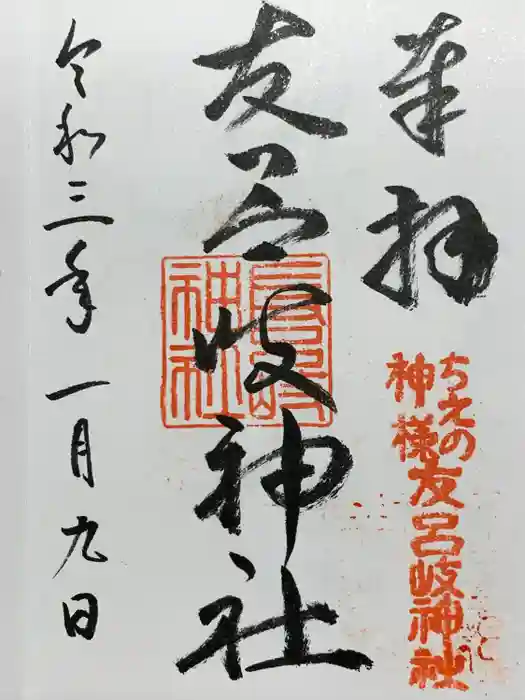 奉拝
ちえの
神様友呂岐神社
友呂岐神社
友呂岐神社
令和三年一月九日